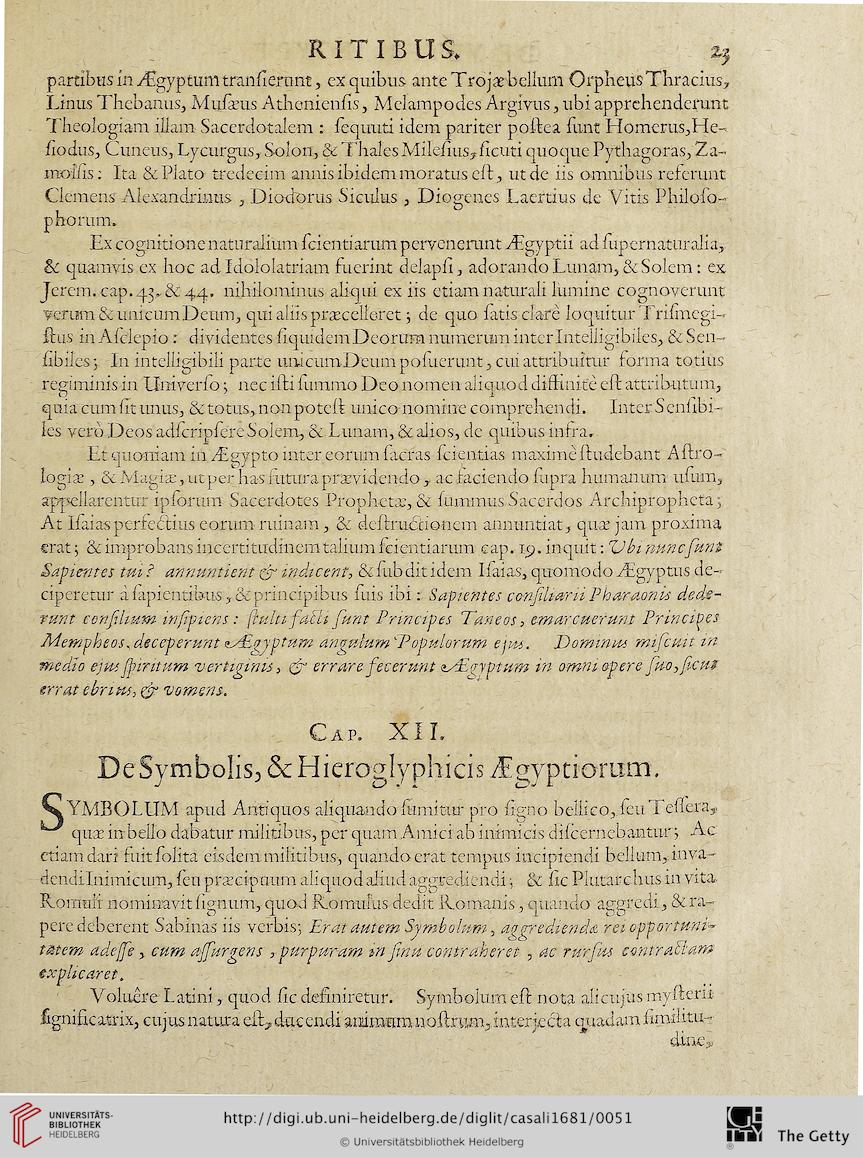 RITIBUS. 23
partibus in Ægyptum tranſierunt, ex quibus ante Trojæ bellum Orpheus Thracius,
Linus Thebanus, Muſæus Athenienſis, Melampodes Argivus, ubi apprehenderunt
Theologiam illam Sacerdotalem : ſequuti idem pariter poſtea ſunt Homerus, He-
ſiodus, Cuneus, Lycurgus, Solon, & Thales Mileſius, ſicuti quoque Pythagoras, Za-
molſis : Ita & Plato tredecim annis ibidem moratus eſt, ut de iis omnibus referunt
Clemens Alexandrinus , Diodorus Siculus , Diogenes Laertius de Vitis Philoſo-
phorum.
Ex cognitione naturalium ſcientiarum pervenerunt Ægyptii ad ſupernaturalia,
& quamvis ex hoc ad Idololatriam fuerint delapſi , adorando Lunam, & Solem : ex
Jerem. cap. 43. & 44. nihilominus aliqui ex iis etiam naturali lumine cognoverunt
verum & unicum Deum, qui aliis præcelleret ; de quo ſatis clarè loquitur Triſmegi-
ſtus in Aſclepio : dividentes ſiquidem Deorum numerum inter Intelligibiles, & Sen-
ſibiles ; In intelligibili parte unicum Deum poſuerunt , cui attribuitur forma totius
regiminis in Univerſo ; nec iſti ſummo Deo nomen aliquod diffinitè eſt attributum,
quia cum ſit unus, & totus, non poteſt unico nomine comprehendi. Inter Senſibi-
les verò Deos adſcripſerè Solem, & Lunam, & alios, de quibus infra.
Et quoniam in Ægypto inter eorum ſacras ſcientias maximè ſtudebant Aſtro-
logiæ , & Magiæ, ut per has futura prævidendo , ac faciendo ſupra humanum uſum,
appellarentur ipſorum Sacerdotes Prophetæ, & ſummus Sacerdos Archipropheta ;
At Iſaias perfectius eorum ruinam , & deſtructionem annuntiat, quæ jam proxima
erat ; & improbans incertitudinem talium ſcientiarum cap. 19. inquit : Ubi nunc ſunt
Sapientes tui ? annuntient & indicent, & ſubdit idem Iſaias, quomodo Ægyptus de-
ciperetur à ſapientibus , & principibus ſuis ibi : Sapientes conſiliarii Pharaonis dede-
runt conſilium inſipiens : ſtulti facti ſunt Principes Taneos , emarcuerunt Principes
Mempheos, deceperunt Ægyptum angulum Populorum ejus. Dominus miſcuit in
medio ejus ſpiritum vertiginis, & errare fecerunt Ægyptum in omni opere ſuo, ſicut
errat ebrius, & vomens.
CAP. XII.
De Symbolis, & Hieroglyphicis Ægyptiorum.
SYMBOLUM apud Antiquos aliquando ſumitur pro ſigno bellico, ſeu Teſſera,
quæ in bello dabatur militibus, per quam Amici ab inimicis diſcernebantur ; Ac
etiam dari fuit ſolita eisdem militibus, quando erat tempus incipiendi bellum, inva-
dendi Inimicum, ſeu præcipuum aliquod aliud aggrediendi ; & ſic Plutarchus in vita
Romuli nominavit ſignum, quod Romulus dedit Romanis , quando aggredi , & ra-
pere deberent Sabinas iis verbis; Erat autem Symbolum , aggrediendæ rei opportuni-
tatem adeſſe , cum aſſurgens , purpuram in ſinu contraheret , ac rurſus contractam
explicaret.
Voluêre Latini , quod ſic definiretur. Symbolum eſt nota alicujus myſterii
ſignificatrix, cujus natura eſt, ducendi animum noſtrum, interjecta quadam ſimilitu-
dine,
UNIVERSITÄTS-
BIBLIOTHEK
HEIDELBERG
http://digi.ub.uni-heidelberg.de/diglit/casali1681/0051
© Universitätsbibliothek Heidelberg
GETTY
The Getty